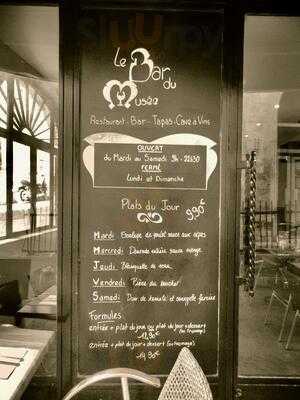 Le Bar du
Musée
Restaurant - Bar - Tapas - Cave à Vins
OUVERT
du Mardi au Samedi 9h - 22h30
FERMÉ
Lundi et Dimanche
Plats du Jour
9,90€
Mardi: Escalope de poulet sauce aux cèpes
Mercredi: Daurade entière sauce vierge
Jeudi: Blanquette de veau
Vendredi: Pièce du boucher
Samedi: Duo de et farcie
Formules
entrée + plat du jour ou plat du jour + dessert
(ou fromage)
12,90€
entrée + plat du jour + dessert (ou fromage)
14,90€